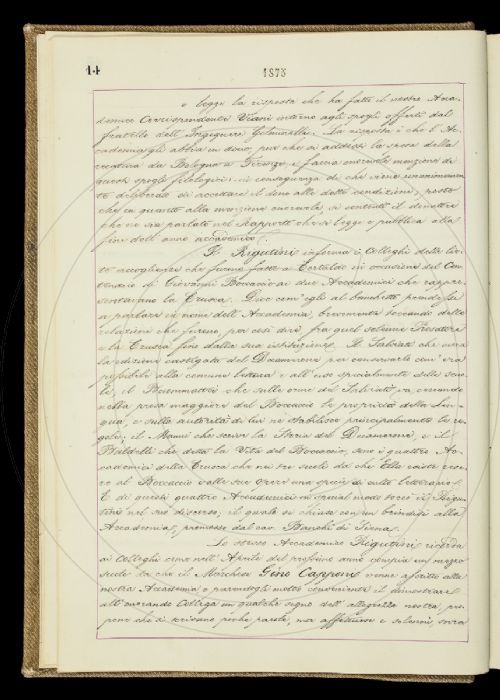 14
1875
e legge la risposta che ha fatto il nostro Acca-
demico Corrispondente Viani intorno agli spogli offerti dal
fratello dell' Ingegnere. La risposta è che l' Ac-
cademia gli abbia in dono, pur che si addossi la spesa della
da Bologna a Firenze e faccia onorevole menzione di
questi spogli filologici: in conseguenza di che viene unanimamen-
te deliberato di accettare il dono alle dette condizioni, posto
che in quanto alla menzione onorevole si contenti il donatore
che ne sia parlato nel Rapporto che si legge e pubblica alla
fine dell' anno accademico.
Il Rigutini informa i Colleghi delle lie-
te accoglienze che furono fatte a Certaldo in occasione del Cen-
tenario di Giovanni Boccaccio ai due Accademici che rappre-
sentavano la Crusca. Dice com' egli al banchetto prendesse
a parlare in nome dell' Accademia, brevemente toccando delle
relazioni che furono, per così dire, fra quel solenne Prosatore
e la Crusca fino dalla sua istituzione. Il Salviati che curò
la edizione castigata del Decamerone per conservarlo com' era
possibile alla comune lettura e all' uso specialmente delle scuo-
le, il Buommattei che sulle orme del Salviati, ma essendo
nella prosa maggiore del Boccaccio le proprietà della Lin-
gua, e sulla autorità di lui ne stabilisce principalmente le re-
gole; il Manni che scrive la Storia del Decamerone, e il
Baldelli che detta la Vita del Boccaccio, sono i quattro Ac-
cademici della Crusca che nei tre secoli da che Ella esiste eres-
sero al Boccaccio colle loro opere una specie di culto letterario.
E di questi quattro Accademici in special modo toccò il Rigu-
tini nel suo discorso; il quale si chiuse con un brindisi alla
Accademia, promosso dal cav. Bianchi di Siena.
Lo stesso Accademico Rigutini ricorda
ai Colleghi come nell' Aprile del prossimo anno compia un mezzo
secolo da che il Marchese Gino Capponi venne ascritto alla
nostra Accademia: e parendogli molto conveniente il dimostrare
all' onorando Collega in qualche segno dell' allegrezza nostra, pro-
pone che si scrivano poche parole, ma affettuose e solenni, sovra